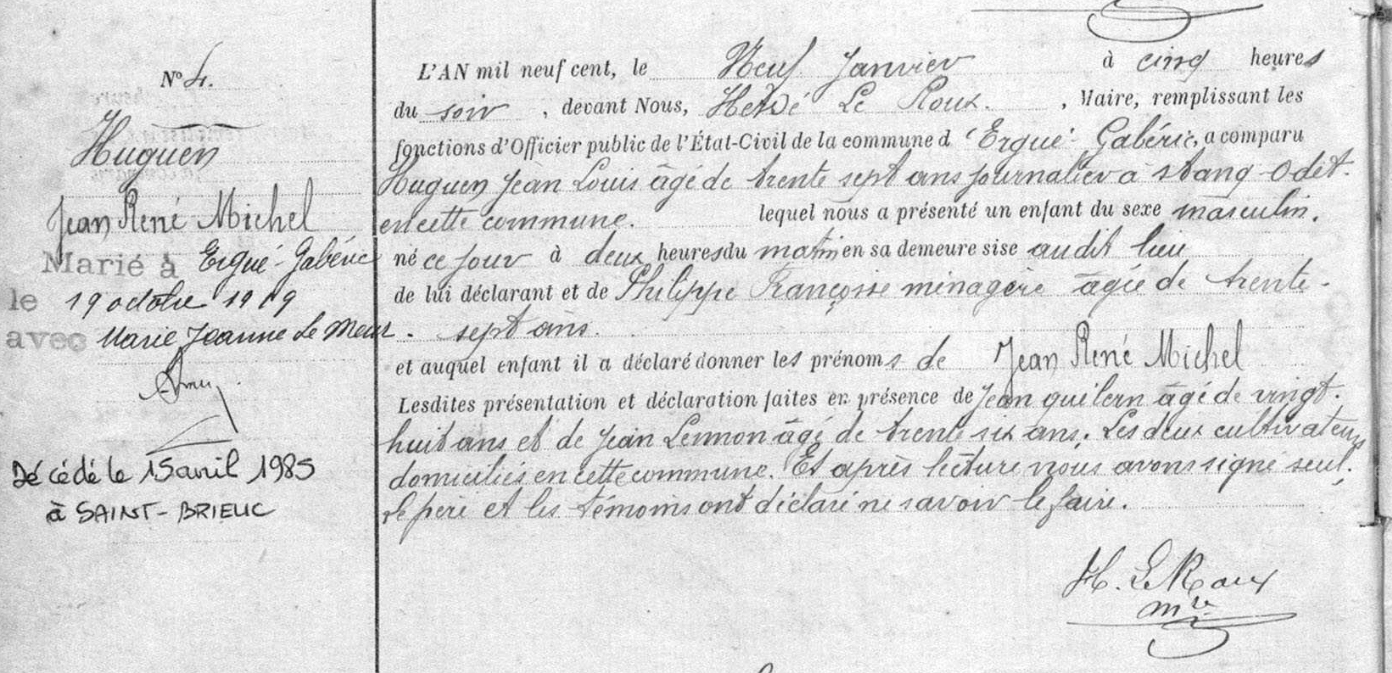 N° 4.
Huguen
Jean René Michel
Marié à Ergué-Gabéric
le 19 octobre 1919
avec Marie Jeanne Le Meur.
Décédé le 15 avril 1985
à SAINT-BRIEUC
L'AN mil neuf cent, le Neuf Janvier à cinq heures
du soir, devant Nous, Hervé Le Roux., Maire, remplissant les
fonctions d'Officier public de l'État-Civil de la commune d'Ergué-Gabéric, a comparu
Huguen Jean Louis âgé de trente sept ans journalier à Stang-Odet
en cette commune. lequel nous a présenté un enfant du sexe masculin.
né ce jour à deux heures du matin en sa demeure sise audit lieu
de lui déclarant et de Philippe Françoise ménagère âgée de trente-
sept ans.
et auquel enfant il a déclaré donner les prénoms de Jean René Michel
Lesdites présentation et déclaration faites en présence de Jean quilern âgé de vingt-
huit ans et de Jean Lennon âgé de trente six ans. Les deux cultivateurs
domiciliés en cette commune. Et après lecture nous avons signé seul.
Le père et les témoins ont déclaré ne savoir le faire.
H. Le Roux
mre